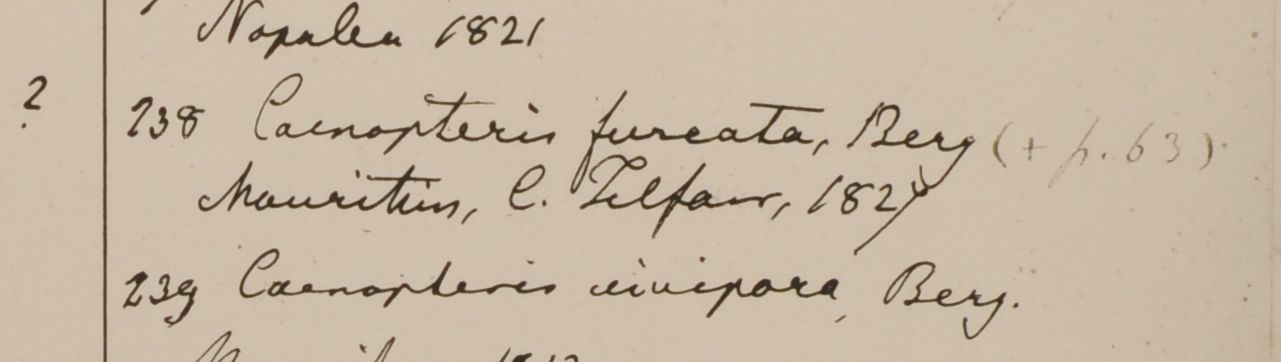 Nopalea 1821
?
238 Caenopteris furcata, Berg (+ p. 63).
Mauritius, C. Telfair, 1827
239 Caenopteris vivipara, Berg.